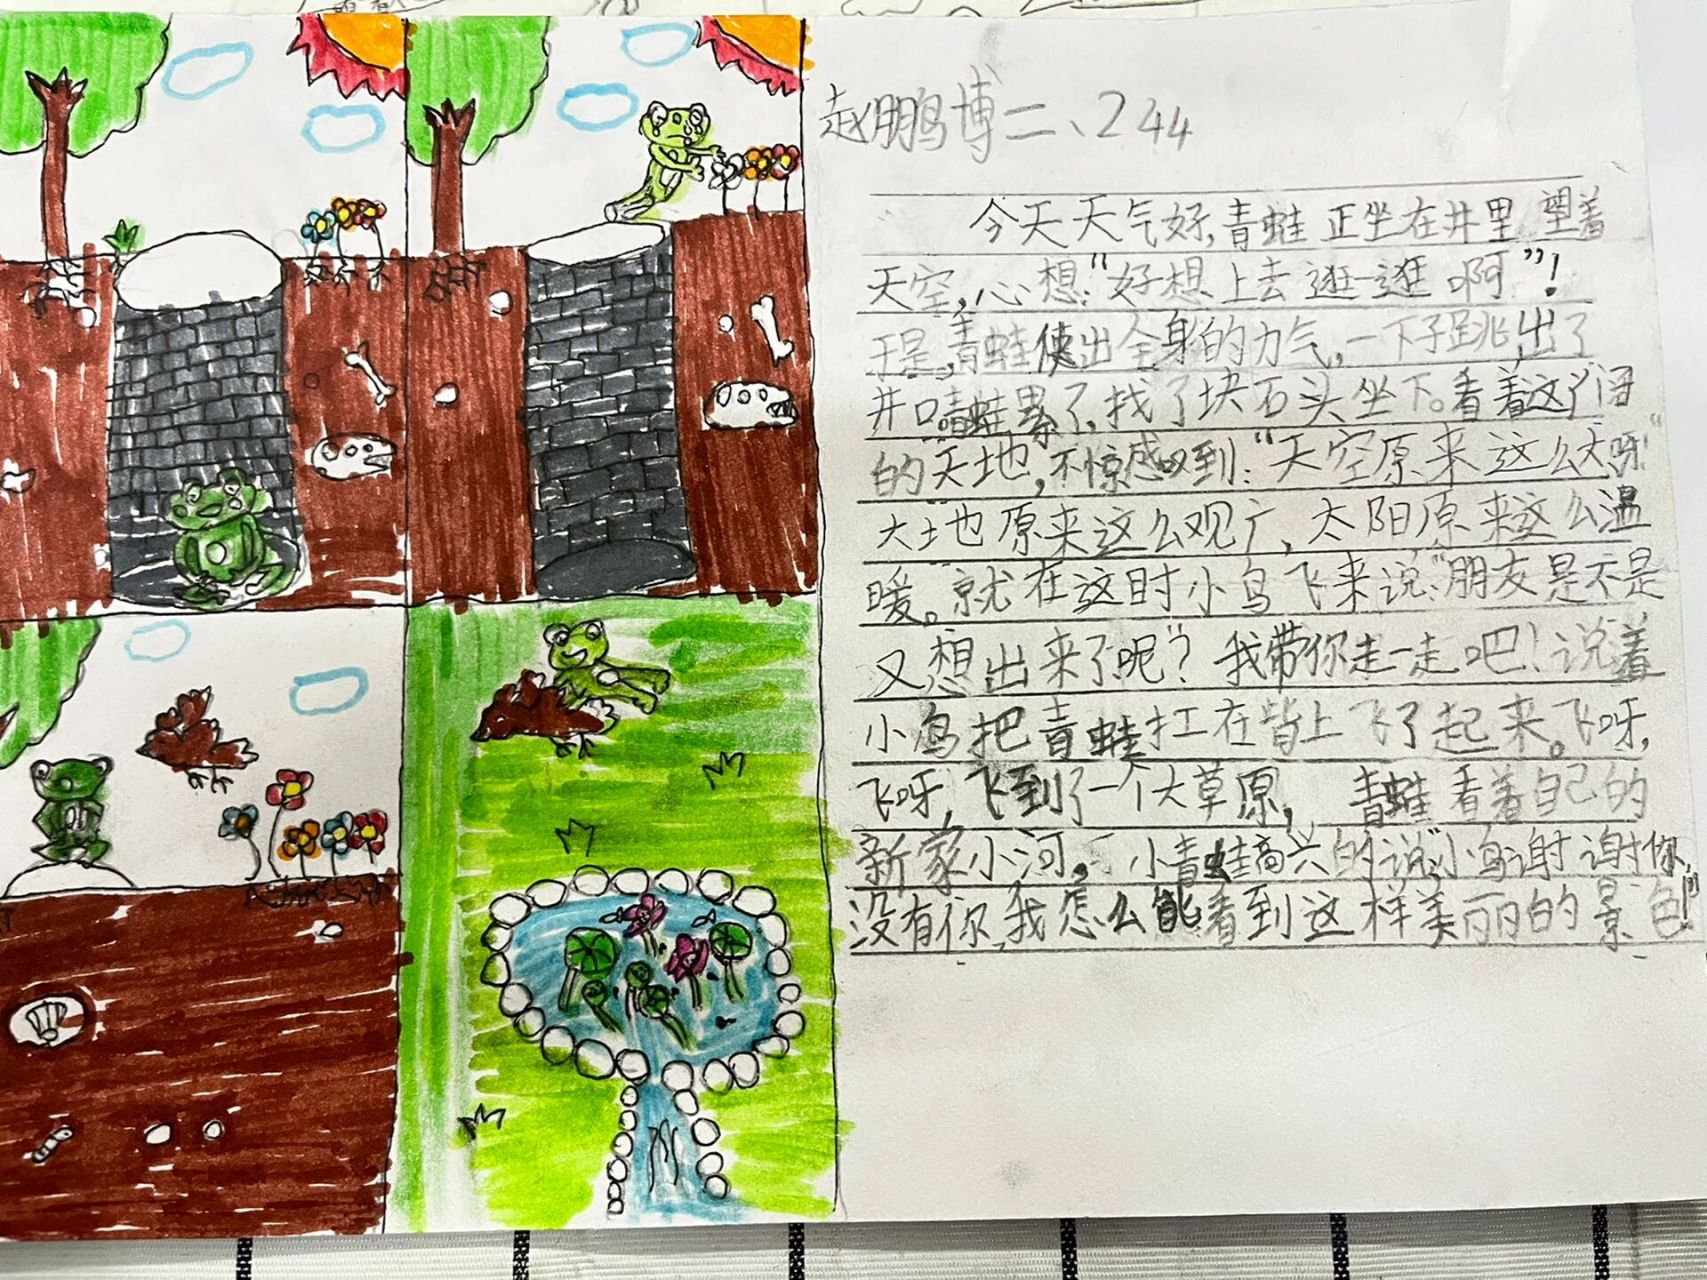 赵鹏博二、2 44
今天天气好,青蛙正坐在井里望着
天空,心想:“好想上去逛一逛啊”!
于是,青蛙使出全身的力气,一下子跳出了
井口。青蛙累了,找了块石头坐下。看着这
的天地,不惊感叹到:“天空原来这么大呀”
大土也原来这么观广,太阳原来这么温
暖。就在这时小鸟飞来说:“朋友是不是
又想出来了呢?我带你走一走吧!说着
小鸟把青蛙扛在背上飞了起来。飞呀,
飞呀,飞到了一个大草原,青蛙看着自己的
新家小河。小青蛙高兴的说“小鸟谢谢你,
没有你,我怎么能看到这样美丽的景色!”